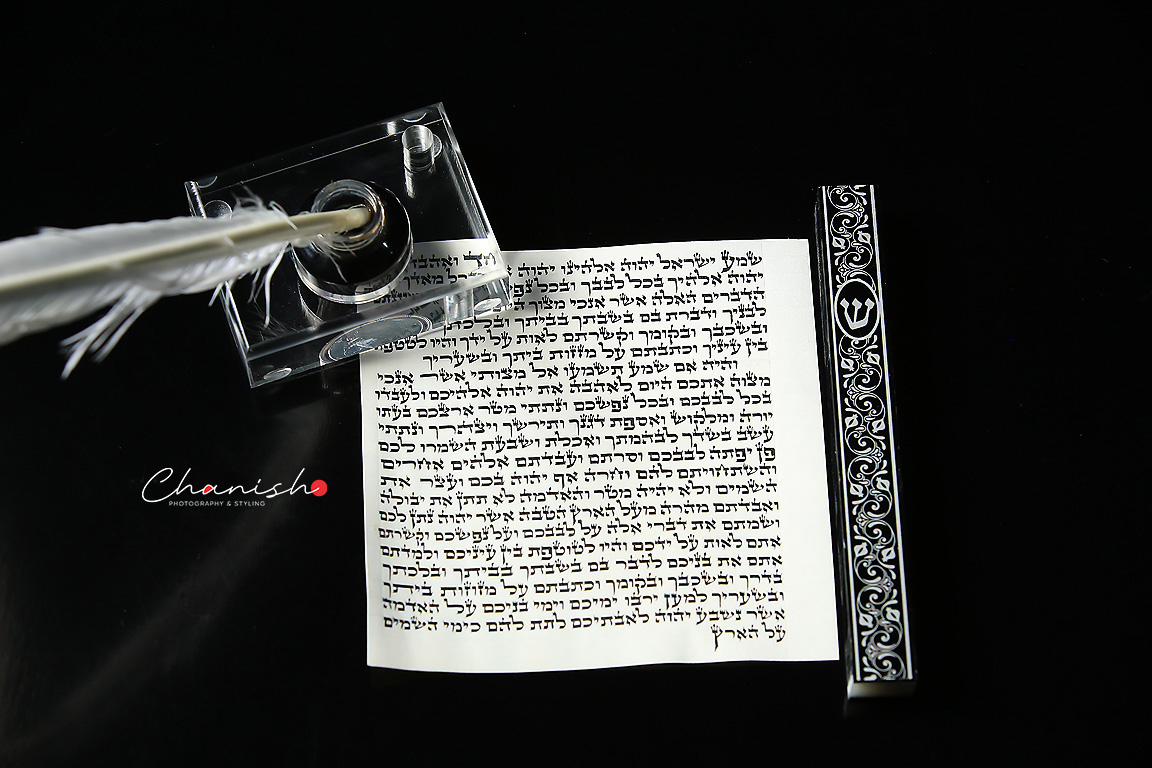 שמע ישראל יהוה אלהינו יהוה
יהוה אלהיך בכל לבבך ובכל מאדך
הדברים האלה אשר אנכי מצוך
לבניך ודברת בם בשבתך בביתך ובלכתך
ובשכבך ובקומך וקשרתם לאות על ידך והיו לטטפת
בין עיניך וכתבתם על מזזות ביתך ובשעריך
והיה אם שמע תשמעו אל מצותי אשר אנכי
מצוה אתכם היום לאהבה את יהוה אלהיכם ולעבדו
בכל לבבכם ובכל נפשכם ונתתי מטר ארצכם בעתו
יורה ומלקוש ואספת דגנך ותירשך ויצהרך ונתתי
עשב בשדך לבהמתך ואכלת ושבעת השמרו לכם
פן יפתה לבבכם וסרתם ועבדתם אלהים אחרים
והשתחויתם להם וחרה אף יהוה בכם ועצר את
השמים ולא יהיה מטר והאדמה לא תתן את יבולה
ואבדתם מהרה מעל הארץ הטבה אשר יהוה נתן לכם
ושמתם את דברי אלה על לבבכם ועל נפשכם וקשרתם
אתם לאות על ידכם והיו לטוטפת בין עיניכם ולמדתם
אתם את בניכם לדבר בם בשבתך בביתך ובלכתך
בדרך ובשכבך ובקומך וכתבתם על מזוזות ביתך
ובשעריך למען ירבו ימיכם וימי בניכם על האדמה
אשר נשבע יהוה לאבתיכם לתת להם כימי השמים
על הארץ
ש
Chanish
PHOTOGRAPHY & STYLING